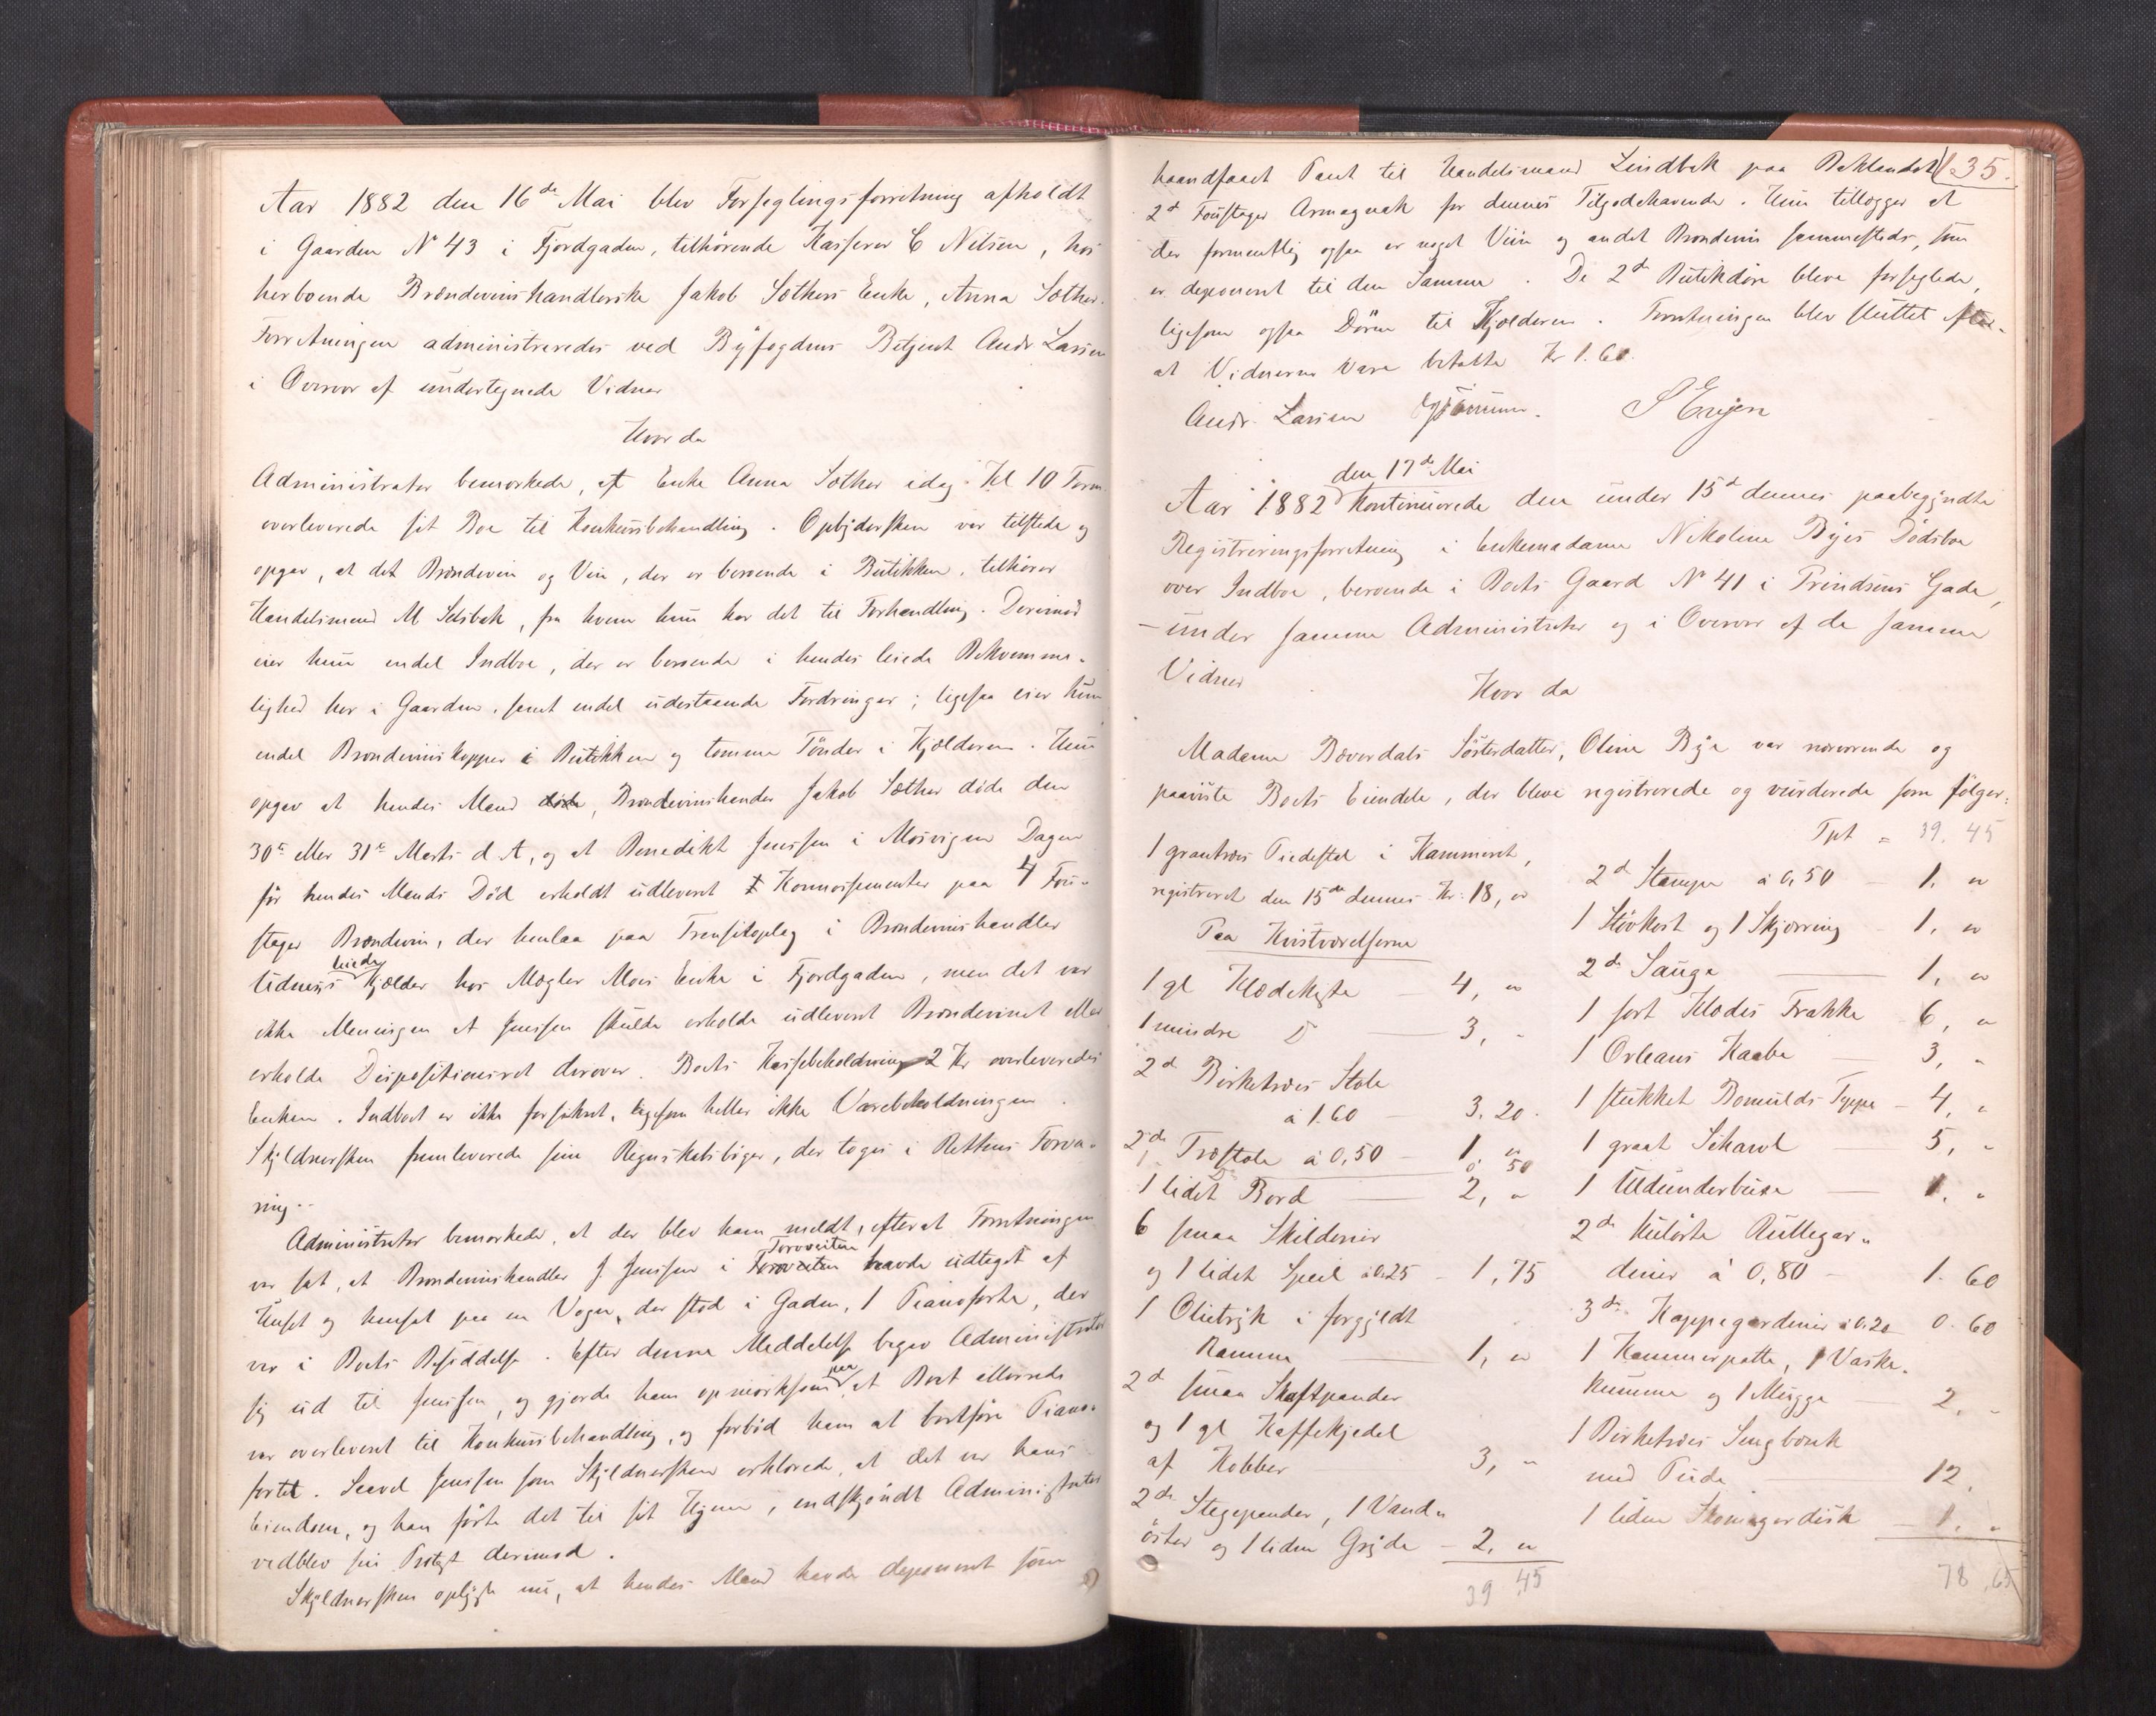 Aar 1882 den 16de Mai blev Forseglingsforretning afholdt
i Gaarden No 43 i Fjordgaden, tilhörende Kasserer C Nilsen, hos
herboende Brændevinshandlerske Jakob Sæthers Enke, Anna Sæther.
Forretningen administreredes ved Byfogdens Betjent Andr. Larsen
i Overvær af undertegnede Vidner
Hvor da
Administrator bemærkede, at Enke Anna Sæther idag Kl 10 Form.
overleverede sit Boe til Konkursbehandling. Opbydersken var tilstede og
opgav, at det Brændevin og Vin, der er beroende i Butikken, tilhører
Handelsmand M Selsbak, fra hvem hun har det til Forhandling. Derimod
eier hun endel Indboe, der er beroende i hendes leiede Bekvemme-
lighed her i Gaarden, samt endel udestaaende Fordringer; ligesaa eier hun
endel Brændevinskopper i Butikken og tomme Tönder i Kjælderen. Hun
opgav at hendes Mand döde, Brændevinshandler Jakob Sæther döde den
30te eller 31te Marts d. A, og at Benedikt Jenssen i Mosvigen Dagen
för hendes Mands Död erholdt udleveret Konnossementer paa 4 Fou-
stager Brændevin, der henlaa paa Transitoplag i Brændevinshandler
leiede
Kjælder hos Mægler Moes Enke i Fjordgaden, men det var
ikke Meningen at Jenssen skulde erholde udleveret Brændevinet eller
erholde Dispositionsret derover. Boets Kassebeholdning 2 Kr overleveredes
Enken. Indboet er ikke forsikret, ligesom heller ikke Varebeholdningen.
Skyldnersken fremleverede sine Regnskabsböger, der toges i Rettens Forva-
ring.
Administrator bemærkede, at der blev ham meldt, efterat Forretningen
var sat, at Brændevinshandler J. Jenssen i havde udtaget af
Huset og hensat paa en Vogn, der stod i Gaden, 1 Pianoforte, der
var i Boets Besiddelse. Efter denne Meddelelse begav Administrator
sig ud til Jenssen, og gjorde ham opmærksom paa at Boet allerede
var overleveret til Konkursbehandling, og forböd ham at bortföre Piano-
fortet. Saavel Jenssen som Skyldnersken erklærede, at det var hans
Eiendom, og han förte det til sit Hjem, endskjöndt Administrator
vedblev sin Protest derimod.
Skyldnersken oplyste nu, at hendes Mand havde deponeret som
135.
haandfaaet Pant til Handelsmand Lindbak paa Baklandet
2de Foustager Armagnak for dennes Tilgodehavende. Hun tillægger at
der formentlig ogsaa er noget Vin og andet Brændevin sammesteds, som
er deponeret til den Samme. De 2de Butikdöre bleve forseglede,
ligesom ogsaa Dören til Kjælderen. Forretningen blev sluttet efter-
at Vidnerne vare betalte Kr 1.60.
Andr. Larsen S Engen
den 17de Mai
Aar 1882 kontinuerede den under 15de dennes paabegyndte
Registreringsforretning i Enkemadame Nikoline Byes Dödsboe
over Indboe, beroende i Boets Gaard No 41 i Prindsens Gade,
- under samme Administrator og i Overvær af de samme
Vidner
Hvor da
Madame Bæverdals Sösterdatter, Oline Bye var nærværende og
paaviste Boets Eiendele, der bleve registrerede og vurderede som fölger:
1 grantræes Piedestal i Kammeret,
registreret den 15de dennes Kr. 18, "
Paa Kvistværelserne
1 gl Klædekiste — 4, "
1 mindre D — 3, "
2de Birketræes Stole
á 1.60 — 3.20.
2de Træstole á 0,50 — 1. "
1 D 0 50
1 lidet Bord — 2, "
6 smaa Skilderier
og 1 lidet Speil á 0.25 — 1,75
1 Olietryk i forgyldt
Ramme — 1, "
2de smaa Skaftpander
og 1 gl Kaffekjedel
af Kobber 3, "
2de Stegepander, 1 Vand-
öster og 1 liden Gryde — 2, "
39 45
Tpt = 39. 45
2de Stamper á 0,50 — 1. "
1 Stövkost og 1 Skjærring — 1, "
2de Sauge — 1, "
1 sort Klædes Frakke — 6, "
1 Orleans Kaabe — 3, "
1 stukket Bomulds Teppe — 4, "
1 graat Schawl — 5, "
1 Uldunderbuxe — 1. "
2de kulörte Rullegar-
diner á 0,80 — 1. 60
3de Kappegardiner á 0.20 0. 60
1 Kammerpotte, 1 Vaske-
kumme og 1 Mugge — 2. "
1 Birketræes Sengbænk
med Pude 12.
1 liden Skomagerdisk — 1. "
78,65